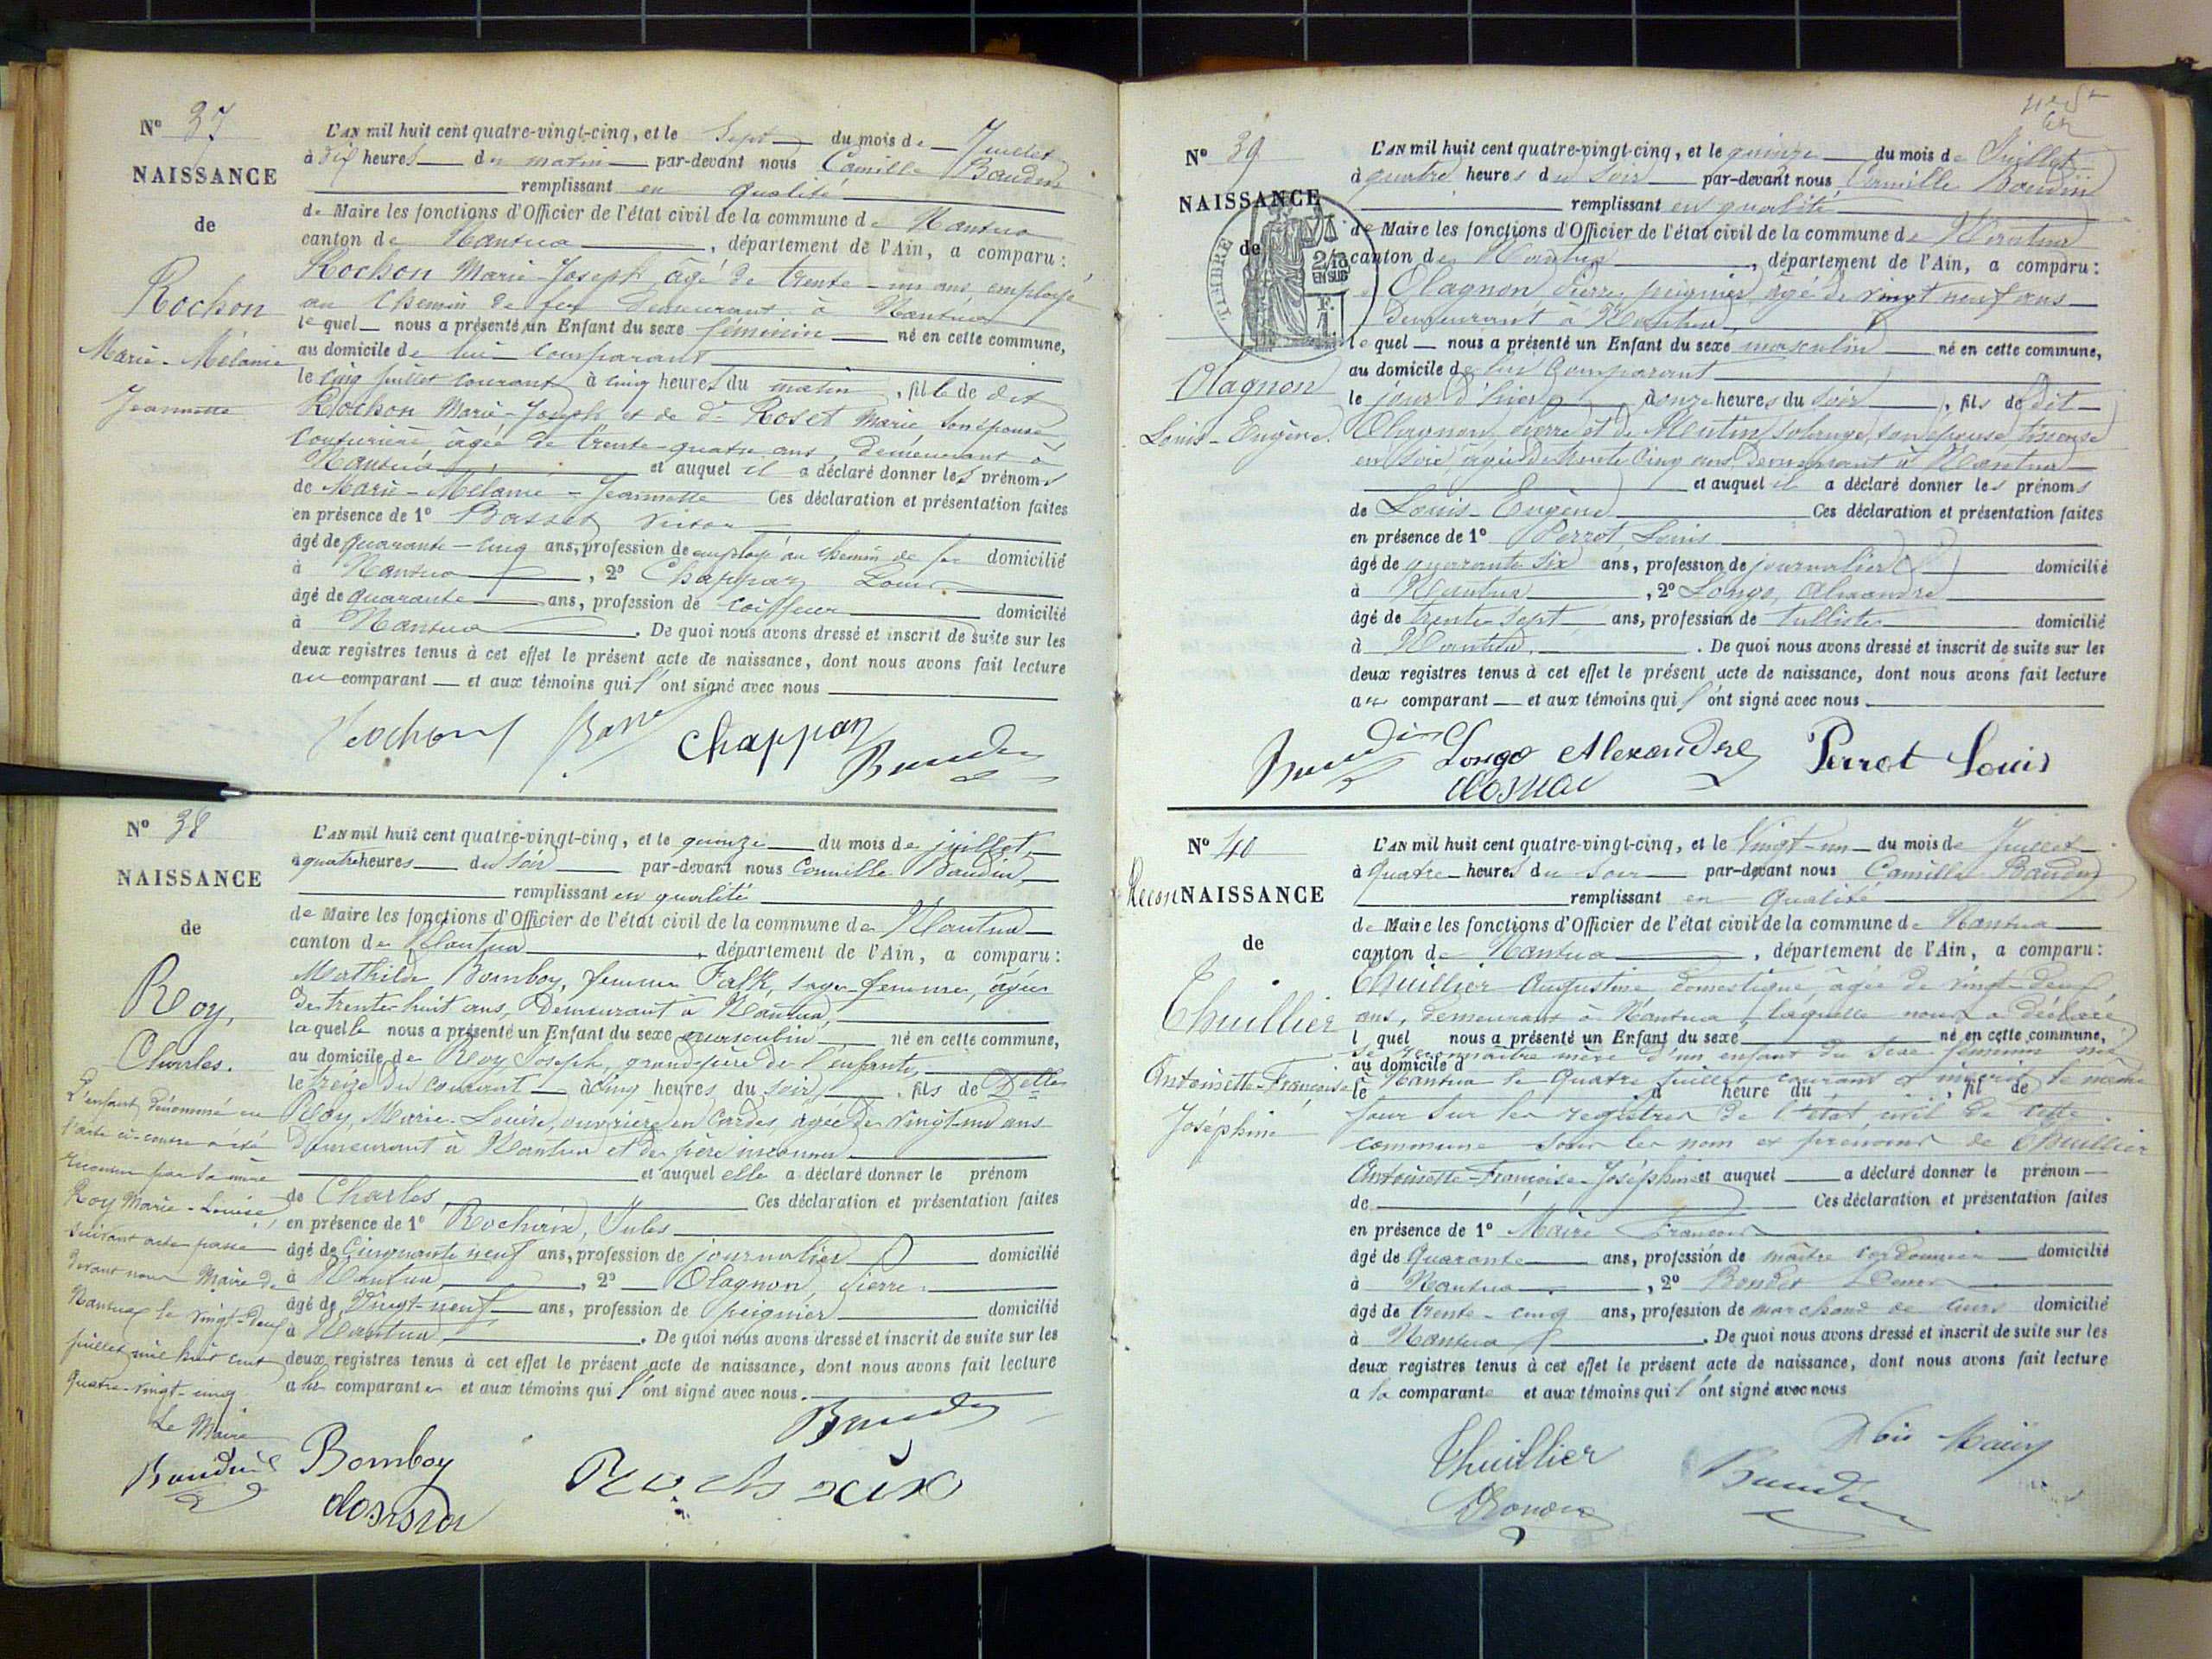 N° 37
NAISSANCE
de
Rochon
Marie-Mélanie
Jeannette
L'AN mil huit cent quatre-vingt-cinq, et le Sept du mois de Juillet
à dix heures du matin par-devant nous Camille Baudin
remplissant en qualité
de Maire les fonctions d'Officier de l'état civil de la commune de Nantua
canton de Nantua, département de l'Ain, a comparu:
Rochon Marie-Joseph, âgé de trente-un ans, employé
au chemin de fer demeurant à Nantua
lequel nous a présenté un Enfant du sexe féminin né en cette commune,
au domicile de lui comparant
le cinq juillet courant à cinq heures du matin, fille de dit
Rochon Marie-Joseph et de de Roset Marie son épouse
couturière âgée de trente-quatre ans, demeurant à
Nantua et auquel il a déclaré donner les prénoms
de Marie-Mélanie-Jeannette Ces déclaration et présentation faites
en présence de 1° Basset Victor
âgé de quarante-cinq ans, profession de employé au chemin de fer domicilié
à Nantua, 2° Chappaz Louis
âgé de quarante ans, profession de coiffeur domicilié
à Nantua. De quoi nous avons dressé et inscrit de suite sur les
deux registres tenus à cet effet le présent acte de naissance, dont nous avons fait lecture
au comparant et aux témoins qui l'ont signé avec nous
Rochon Chappaz
Baudin
N° 38
NAISSANCE
de
Roy,
Charles.
L'enfant dénommé en
l'acte ci-contre a été
reconnu par sa mère
Roy Marie-Louise,
suivant acte passé
devant nous Maire de
Nantua le vingt-deux
juillet mil huit cent
quatre-vingt-cinq
Le Maire
Baudin
L'AN mil huit cent quatre-vingt-cinq, et le quinze du mois de juillet
à quatre heures du soir par-devant nous Camille Baudin,
remplissant en qualité
de Maire les fonctions d'Officier de l'état civil de la commune de Nantua
canton de Nantua, département de l'Ain, a comparu:
Mathilde Bomboy, femme Falk, sage-femme, âgée
de trente huit ans, Demeurant à Nantua,
laquelle nous a présenté un Enfant du sexe masculin né en cette commune,
au domicile de Roy Joseph, grand-père de l'enfant,
le treize du courant à cinq heures du soir, fils de Delle
Roy, Marie-Louise, ouvrière en cardes, agée de vingt-un ans
demeurant à Nantua et de père inconnu.
et auquel elle a déclaré donner le prénom
de Charles, Ces déclaration et présentation faites
en présence de 1° Rochaix, Jules
âgé de Cinquante neuf ans, profession de journalier domicilié
à Nantua, 2° Olagnon, Pierre
âgé de Vingt-neuf ans, profession de peignier domicilié
à Nantua. De quoi nous avons dressé et inscrit de suite sur les
deux registres tenus à cet effet le présent acte de naissance, dont nous avons fait lecture
à la comparante et aux témoins qui l'ont signé avec nous.
Baudin
Bomboy
Rochaix
N° 39
NAISSANCE
de
TIMBRE
2/10
EN SUS
Olagnon
Louis-Eugène.
L'AN mil huit cent quatre-vingt-cinq, et le quinze du mois de Juillet
à quatre heures du soir par-devant nous Camille Baudin
remplissant en qualité
de Maire les fonctions d'Officier de l'état civil de la commune de Nantua
canton de Nantua, département de l'Ain, a comparu:
Olagnon Pierre, peignier, âgé de vingt neuf ans
demeurant à Nantua
lequel nous a présenté un Enfant du sexe masculin né en cette commune,
au domicile de lui Comparant
le jour d'hier à onze heures du soir, fils de dit
Olagnon, Pierre et de Mentin Solange, son épouse, tisseuse
en soie, agée de trente cinq ans, demeurant à Nantua
et auquel il a déclaré donner les prénoms
de Louis-Eugène Ces déclaration et présentation faites
en présence de 1° Perrot, Louis
âgé de quarante six ans, profession de journalier domicilié
à Nantua, 2° Longo, Alexandre
âgé de trente sept ans, profession de tulliste domicilié
à Nantua. De quoi nous avons dressé et inscrit de suite sur les
deux registres tenus à cet effet le présent acte de naissance, dont nous avons fait lecture
au comparant et aux témoins qui l'ont signé avec nous.
Baudin Longo Alexandre Perrot Louis
N° 40
Recon NAISSANCE
de
Thuillier
Antoinette-Françoise
Joséphine
L'AN mil huit cent quatre-vingt-cinq, et le Vingt-un du mois de Juillet
à Quatre heures du soir par-devant nous Camille Baudin
remplissant en qualité
de Maire les fonctions d'Officier de l'état civil de la commune de Nantua
canton de Nantua, département de l'Ain, a comparu:
Thuillier Augustine domestique, âgée de vingt-deux
ans, demeurant à Nantua, laquelle nous a déclaré
l quel nous a présenté un Enfant du sexe né en cette commune,
se reconnaître mère d'un enfant du sexe féminin né
au domicile d
à Nantua le quatre juillet courant et inscrit le même
le à heure du, fil de
jour sur les registres de l'état civil de cette
commune sous les nom et prénoms de Thuillier
Antoinette-Françoise-Joséphine et auquel a déclaré donner le prénom
de Ces déclaration et présentation faites
en présence de 1° Maire François
âgé de Quarante ans, profession de maître cordonnier domicilié
à Nantua, 2°
âgé de trente-cinq ans, profession de marchand de cuirs domicilié
à Nantua. De quoi nous avons dressé et inscrit de suite sur les
deux registres tenus à cet effet le présent acte de naissance, dont nous avons fait lecture
à la comparante et aux témoins qui l'ont signé avec nous
Thuillier
Baudin